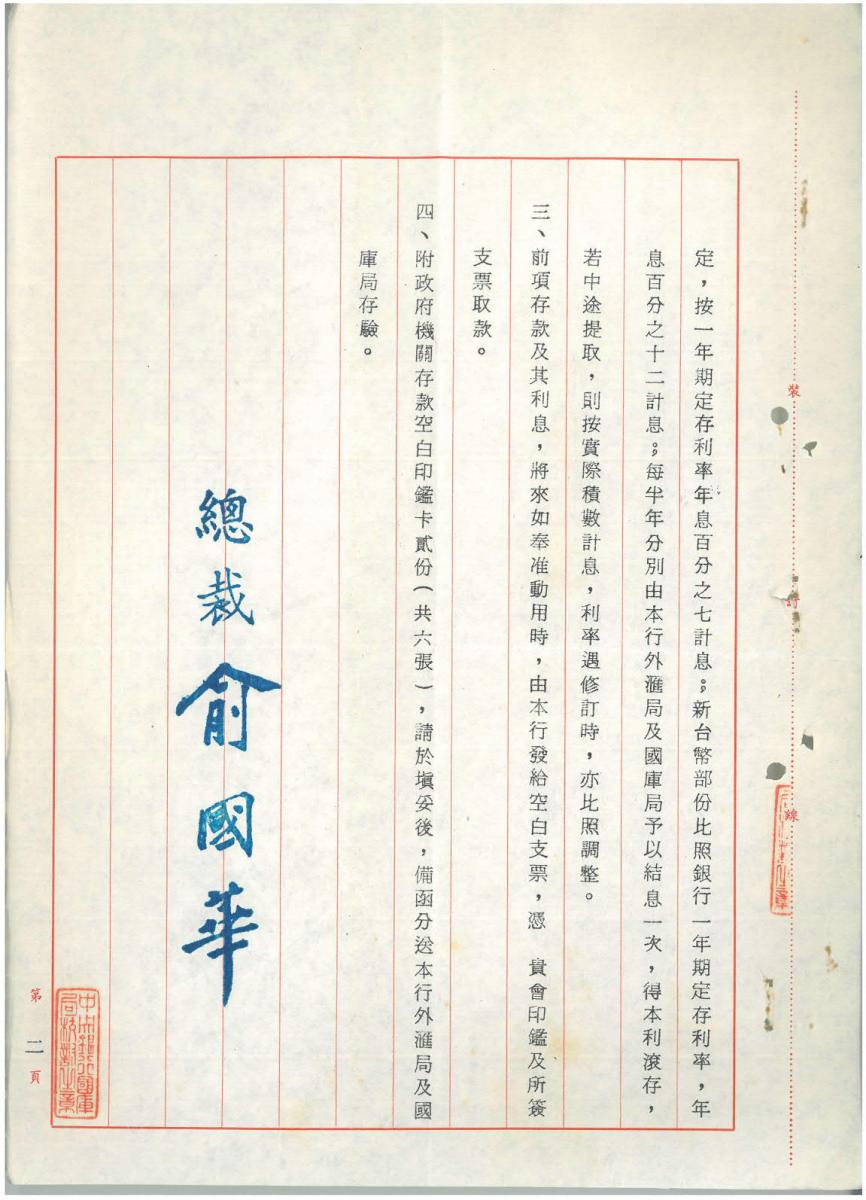 定，按一年期定存利率年息百分之七計息；新台幣部份比照銀行一年期定存利率，年
息百分之十二計息；每半年分別由本行外滙局及國庫局予以結息一次，得本利滾存，
若中途提取，則按實際積數計息，利率遇修訂時，亦比照調整。
三、前項存款及其利息，將來如奉准動用時，由本行發給空白支票，憑　貴會印鑑及所簽
支票取款。
四、附政府機關存款空白印鑑卡貳份（共六張），請於填妥後，備函分送本行外滙局及國
庫局存驗。
總裁俞國華
裝
訂
線
第二頁